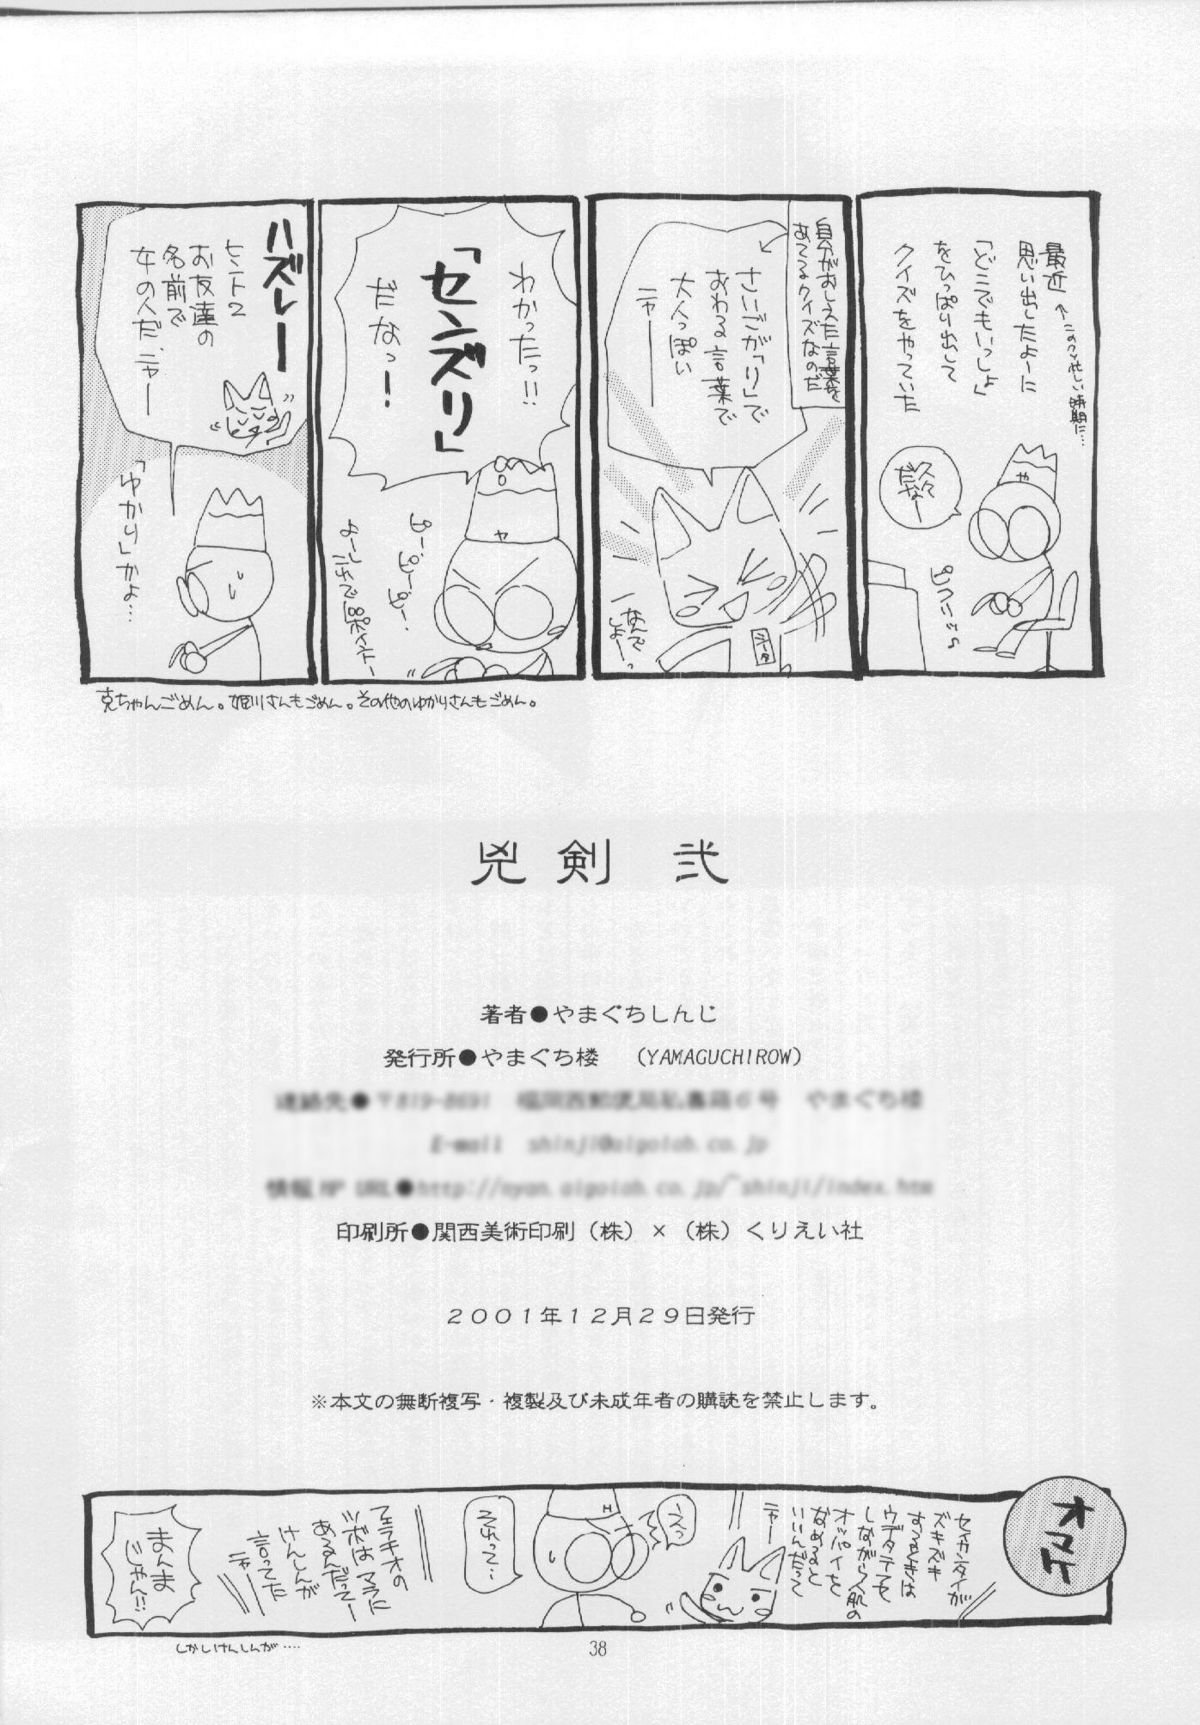 最近
思い出したよーに
「どこでもいっしょ」
をひっぱり出して
クイズをやっていた
このクソ忙しい時期に…
久々
だなー
自分がおしえた言葉を
あてるクイズなのだ
さいごが「り」で
おわる言葉で
大人っぽい
ニャー
なんで
しょーっ
わかったっ!!
「センズリ」
だなっー!
ハズレー
ヒント2
お友達の
名前で
女の人だ、ニャー
「ゆかり」かよ…
克ちゃんごめん。姫川さんもごめん。その他のゆかりさんもごめん。
兇剣 弐
著者●やまぐちしんじ
発行所●やまぐち楼 (YAMAGUCHIROW)
印刷所●関西美術印刷(株)×(株)くりえい社
2001年12月29日発行
※本文の無断複写・複製及び未成年者の購読を禁止します。
オマケ
セイカンタイが
ズキズキ
するときは
ウデタテを
しながら人肌の
オッパイを
なめると
いいんだって
ニャー
えっ
それって…
フェラチオの
ツボはマラに
あるんだってー
けんしんが
言ってた
ニャー
まんま
じゃん!!
しかしけんしんが……
38